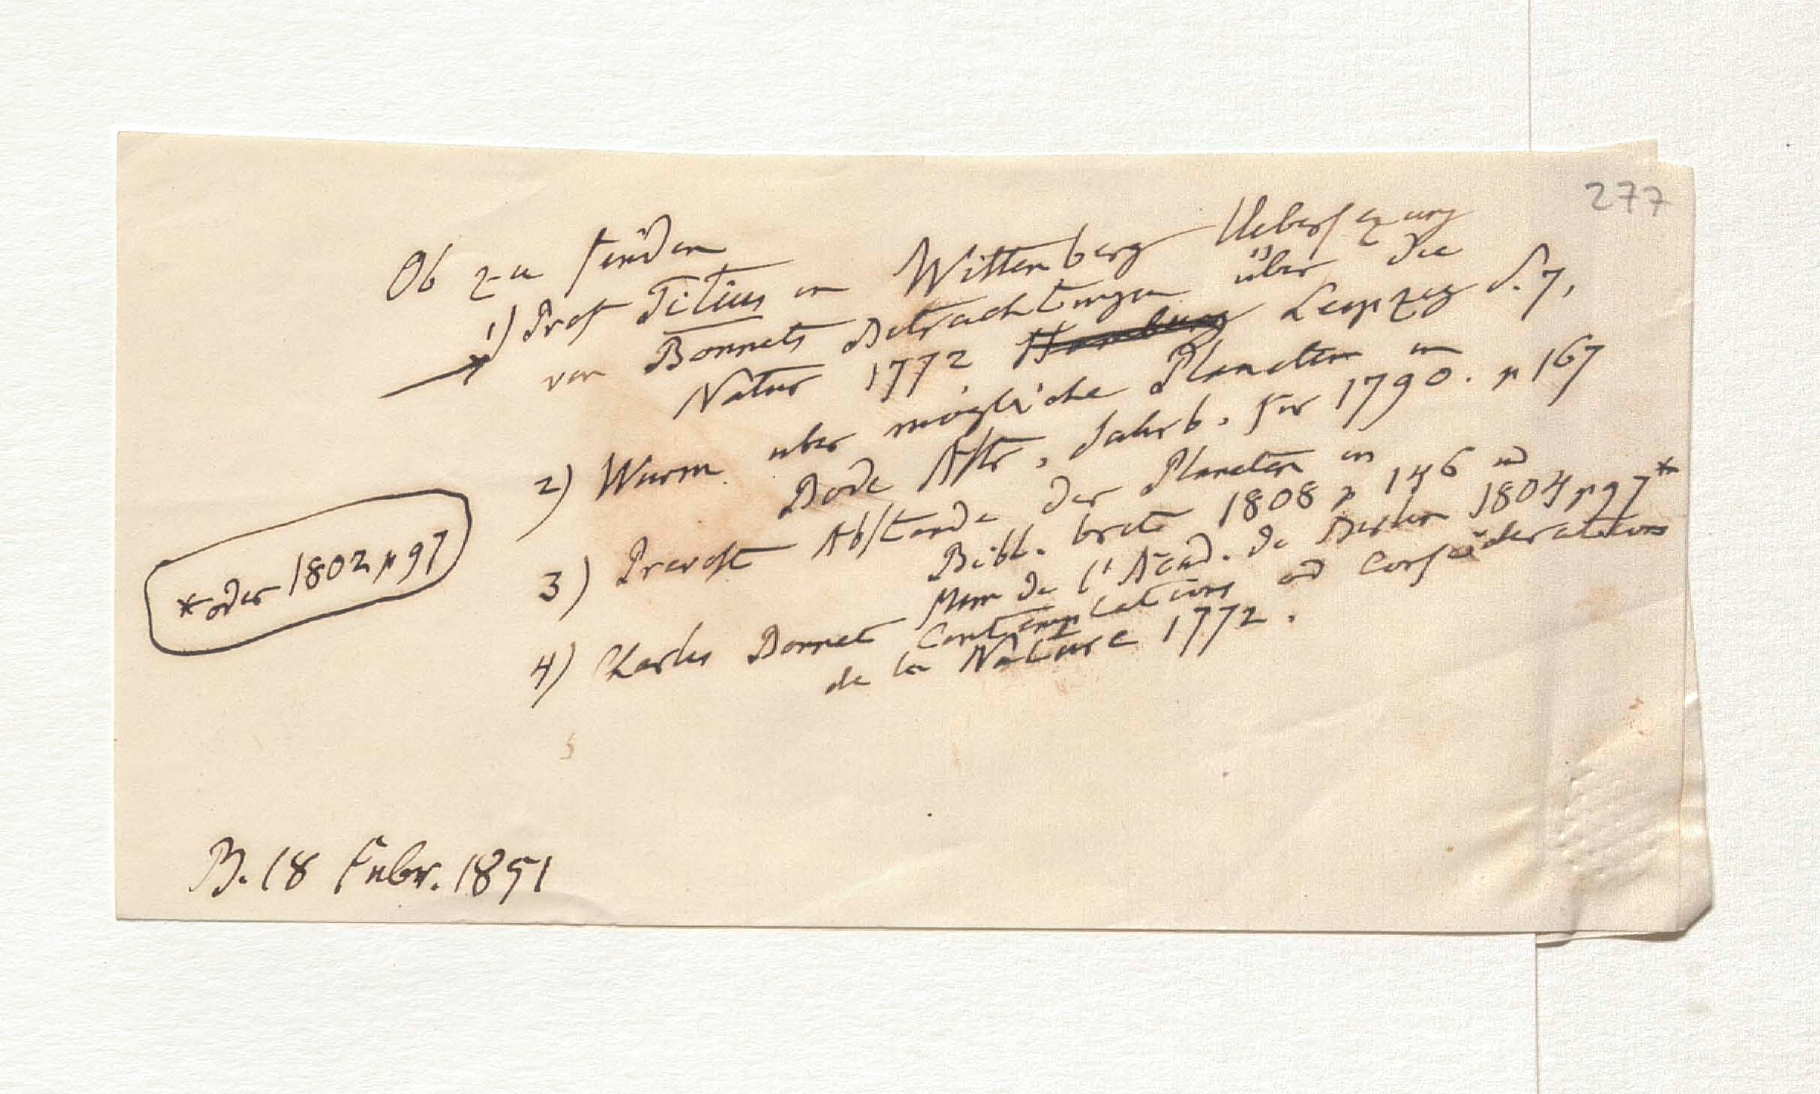 277
Ob zu finden
1) Prof Titius in Wittenberg Uebersezung
von Bonnets Betrachtungen über die
Natur 1772 Hamburg Leipzig S. 7,
2) Wurm über mögliche Planeten in
Bode Astr. Jahrb. für 1790. p 167
3) Prevost Abstande der Planeten in
Bibl. brit 1808 p 146 und
Mem de l'Acad. de Berlin 1804 p 97*
*oder 1802 p 97
4) Charles Bonnet Contemplations od Considerations
de la Nature 1772.
B. 18 Febr. 1851